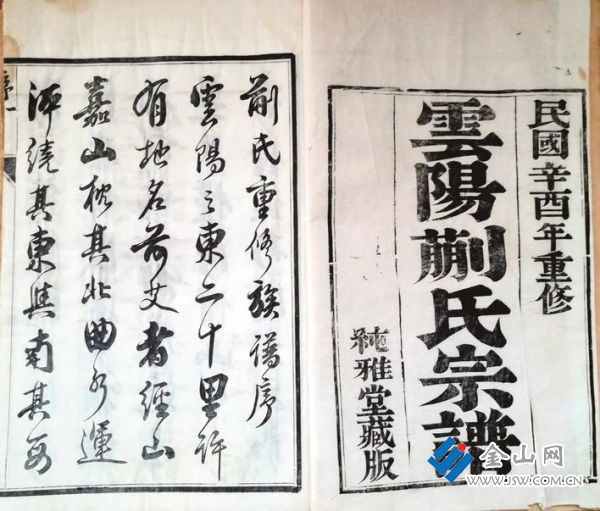 民國辛酉年重修
雲陽蒯氏宗譜
純雅堂藏版
蒯氏重修族譜序
雲陽之東二十里許
有地名前艾者經山
嘉山枕其北曲水運
河繞其東與南其
序一
金山网
WWW.JSW.COM.CN